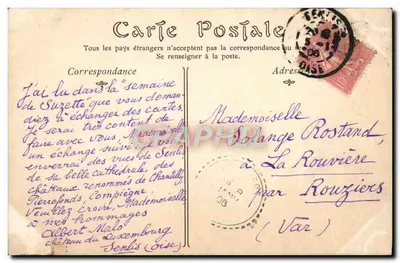 Carte Postale
Tous les pays étrangers n'acceptent pas la correspondance au
Se renseigner à la poste.
Correspondance
Adresse
J'ai lu dans la "semaine
de Suzette que vous deman-
diez à échanger des cartes.
Je serai très content de
faire avec vous
un échange suivi
enverrai des vues de Senlis
de sa belle cathédrale, des
châteaux renommés de Chantilly
Pierrefonds, Compiègne.
Veuillez croire, Mademoiselle
à mes hommages
Albert Malo
château du Luxembourg
Senlis (Oise)
Mademoiselle
Solange Rostand,
à La Rouvière
par Rouziers
(Var)
SENLIS
OISE